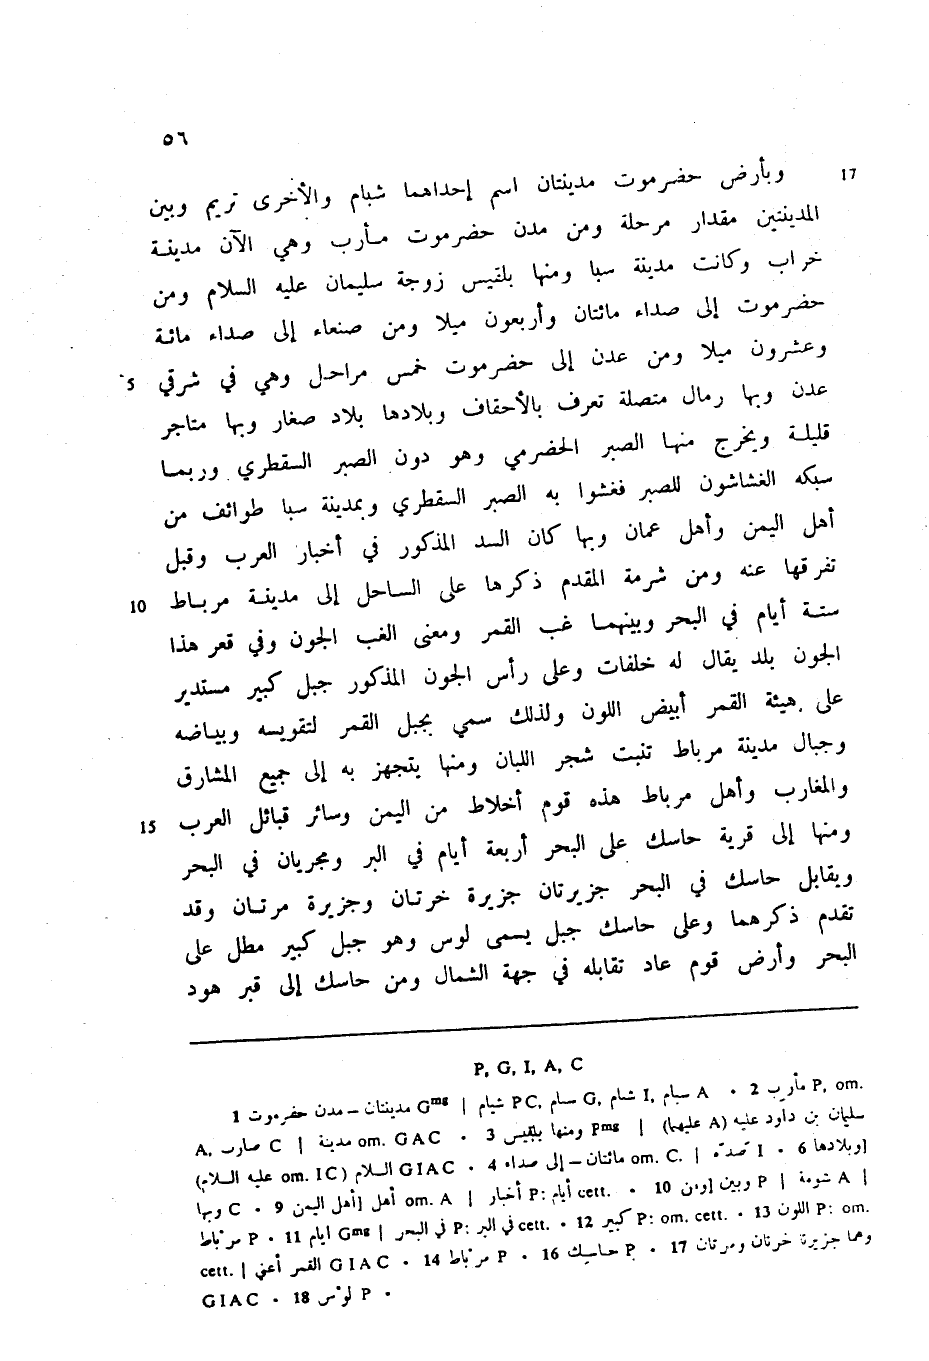 ٥٦
17 وبأرض حضرموت مدينتان اسم إحداهما شبام والأخرى تريم وبين
المدينتين مقدار مرحلة ومن مدن حضرموت مأرب وهي الآن مدينة
خراب وكانت مدينة سبا ومنها بلقيس زوجة سليمان عليه السلام ومن
حضرموت إلى صداء مائتان وأربعون ميلا ومن صنعاء إلى صداء مائة
5 وعشرون ميلا ومن عدن إلى حضرموت خمس مراحل وهي في شرقي
عدن وبها رمال متصلة تعرف بالأحقاف وبلادها بلاد صغار وبها متاجر
قليلة ويخرج منها الصبر الحضرمي وهو دون الصبر السقطري وربما
سبكه الغشاشون للصبر فغشوا به الصبر السقطري وبمدينة سبا طوائف من
أهل اليمن وأهل عمان وبها كان السد المذكور في أخبار العرب وقبل
10 تفرقها عنه ومن شرمة المقدم ذكرها على الساحل إلى مدينة مرباط
ستة أيام في البحر وبينهما غب القمر ومعنى الغب الجون وفي قعر هذا
الجون بلد يقال له خلفات وعلى رأس الجون المذكور جبل كبير مستدير
على هيئة القمر أبيض اللون ولذلك سمي بجبل القمر لتقويسه وبياضه
وجبال مدينة مرباط تنبت شجر اللبان ومنها يتجهز به إلى جميع المشارق
15 والمغارب وأهل مرباط هذه قوم أخلاط من اليمن وسائر قبائل العرب
ومنها إلى قرية حاسك على البحر أربعة أيام في البر ومجريان في البحر
ويقابل حاسك في البحر جزيرتان جزيرة خرتان وجزيرة مرتان وقد
تقدم ذكرهما وعلى حاسك جبل يسمى لوس وهو جبل كبير مطل على
البحر وأرض قوم عاد تقابله في جهة الشمال ومن حاسك إلى قبر هود
P, G, I, A, C
1 مدينتان – مدن حضرموت Gmg | شبام PC, سام G, شام I, سبام A • 2 مأرب P, om.
A, صارب C | مدينة om. GAC • 3 ومنها بلقيس Pmg | (عليهما A) سليمان بن داود عليه
(عليه السلام om. IC) السلام GIAC • 4 مائتان – إلى صداء om. C. | I • 6 وبلادها]
وبها C • 9 أهل [أهل اليمن om. A | أخبار P: أيام cett. • 10 ومن] وبين P | شومة A |
مرباط P • 11 ايام Gmg | في البحر P: في البر cett. • 12 كبير P: om. cett. • 13 اللون P: om.
cett. | القمر أعني GIAC • 14 مرباط P • 16 حاسك P • 17 وهما جزيرة خرتان ومرتان
GIAC • 18 لوس P •